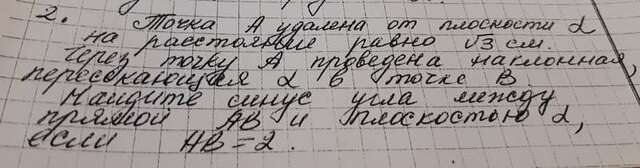 2. Точка А удалена от плоскости α
на расстояние равно √3 см.
Через точку А проведена наклонная,
пересекающая α в точке В
Найдите синус угла между
прямой АВ и плоскостью α,
если АВ=2.